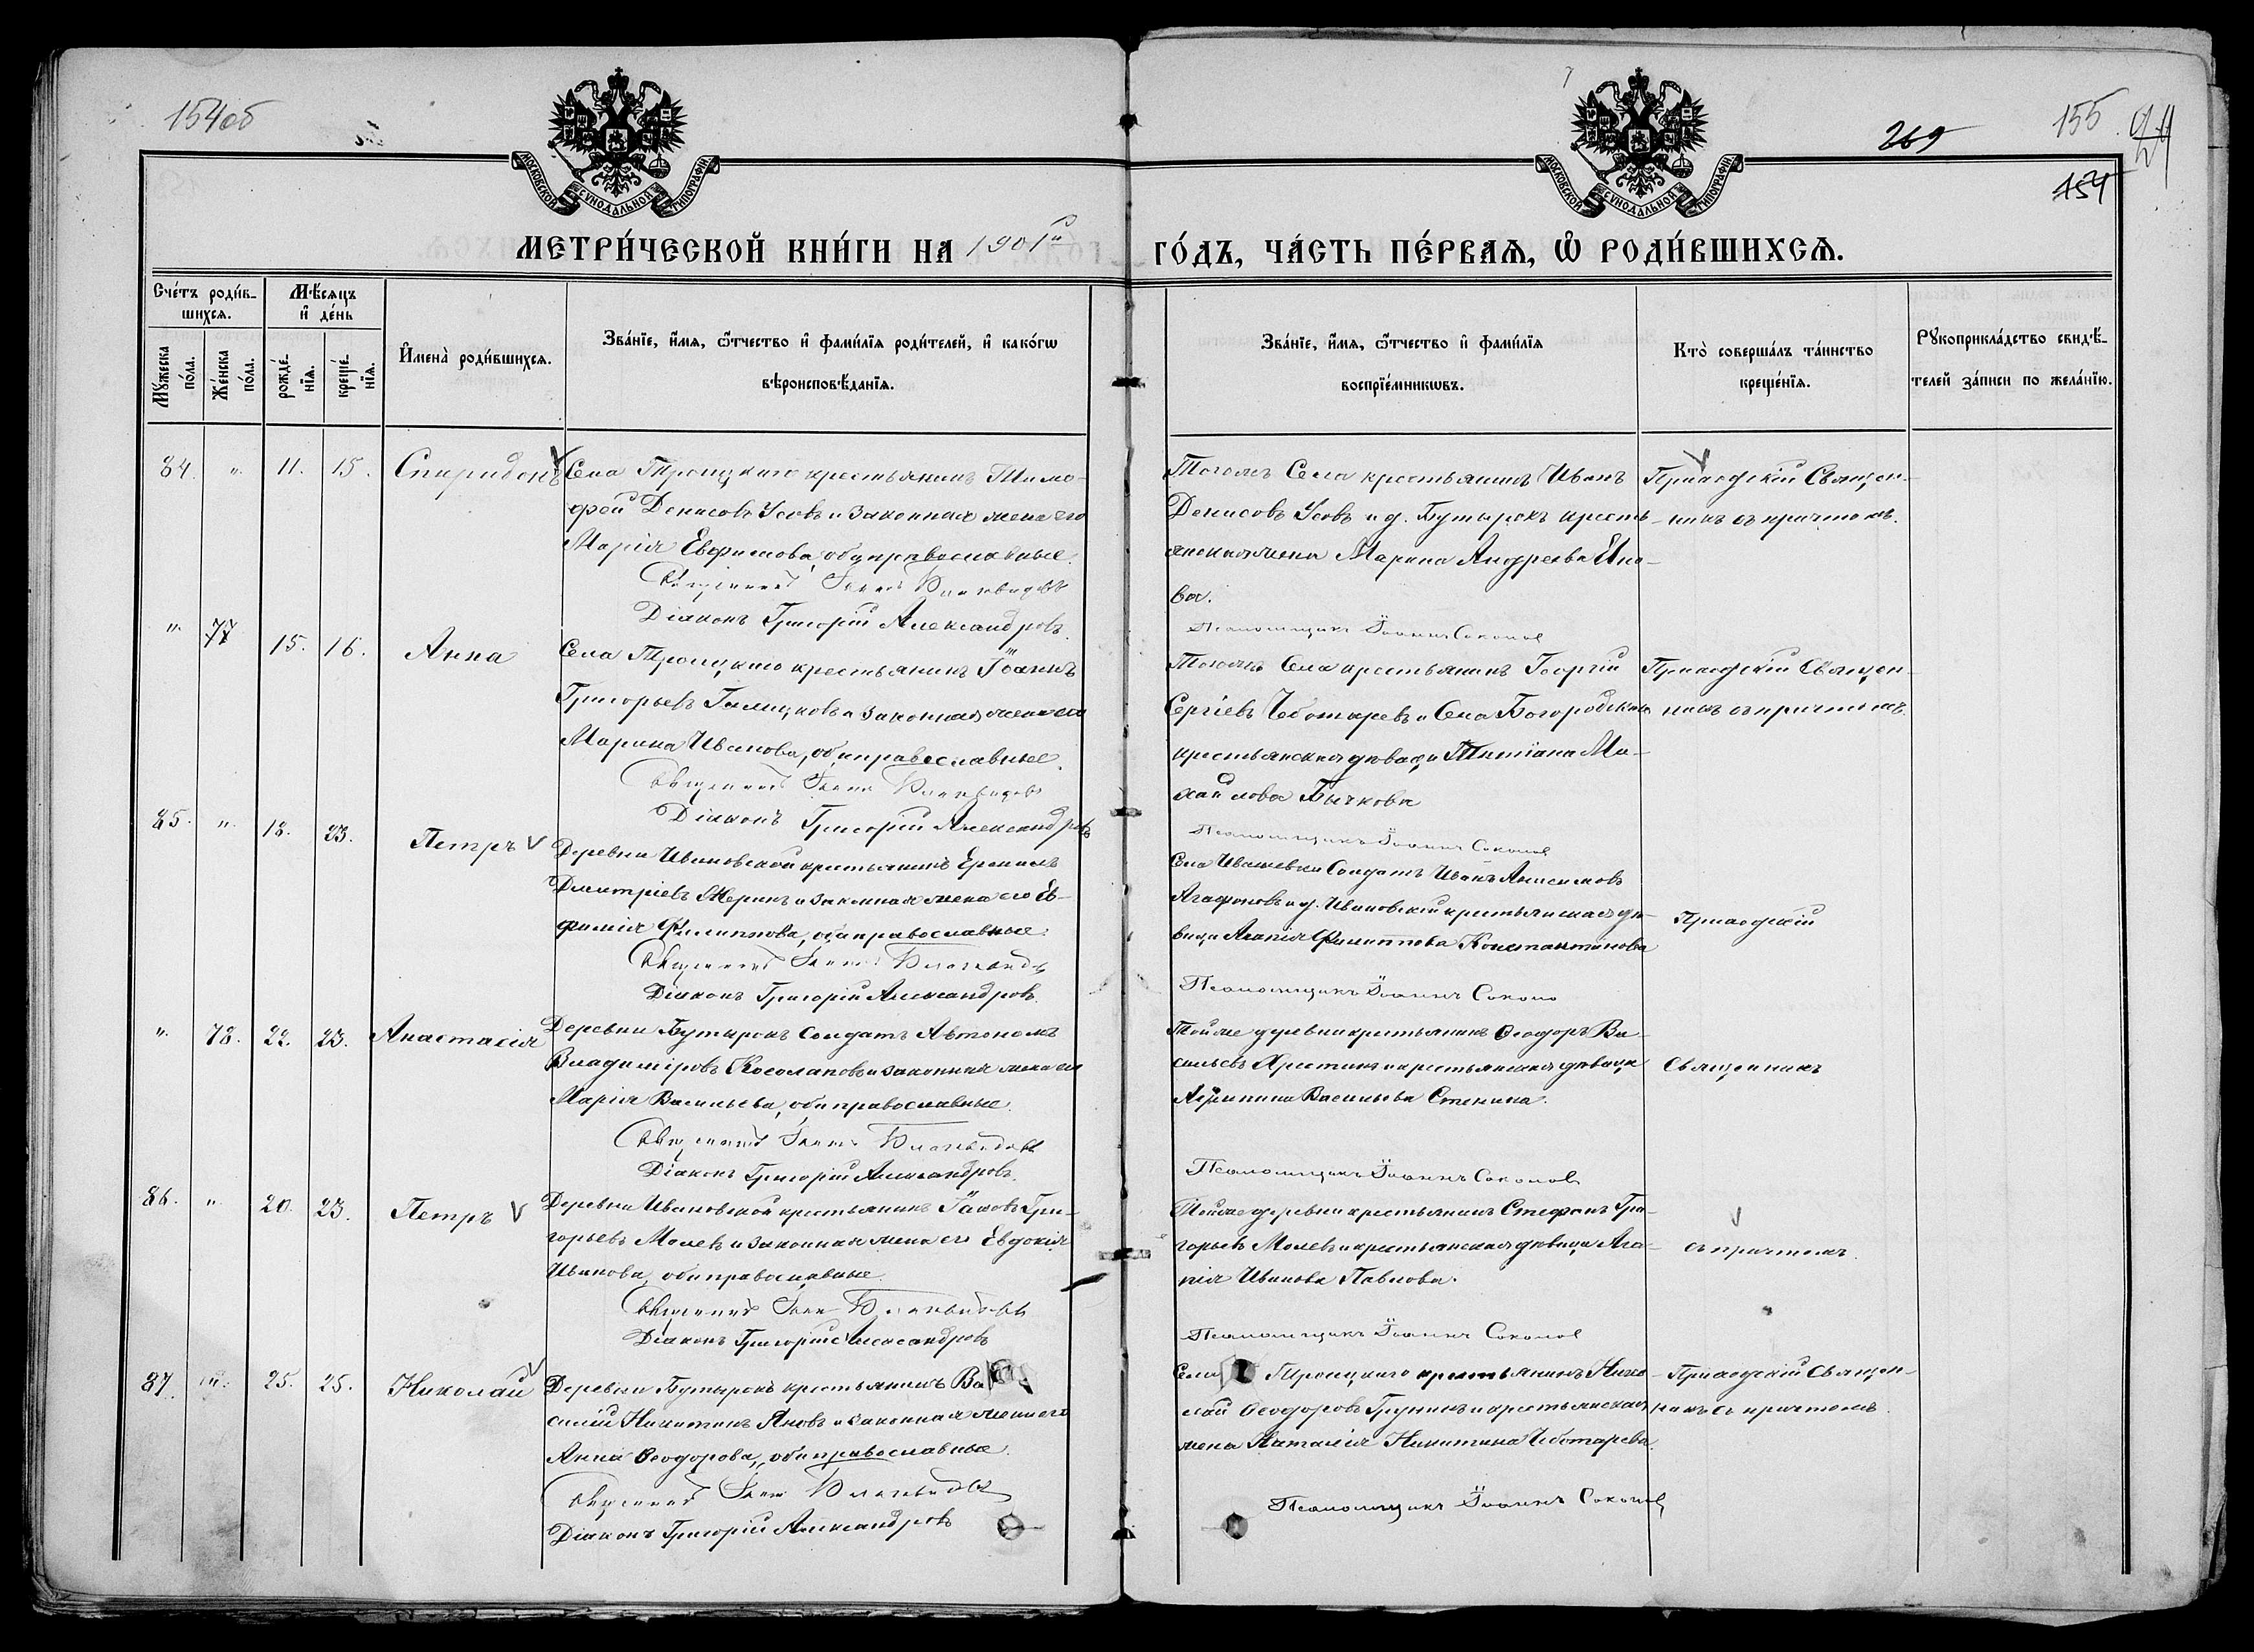 154об
155
269
154
МОСКОВСКОЙ СУНОДАЛЬНОЙ ТИПОГРАФIИ
МОСКОВСКОЙ СУНОДАЛЬНОЙ ТИПОГРАФIИ
МЕТРИ́ЧЕСКОЙ КНИ́ГИ НА 1901й
ГО́ДЪ, ЧА́СТЬ ПЕ́РВАѦ, Ѡ РОДИ́ВШИХСѦ.
Сче́тъ роди́вшихсѧ.
Мꙋжеска по́ла.
Же́нска по́ла.
Мѣ́сѧцъ и де́нь
рожде́нїѧ.
креще́нїѧ.
Имена̀ роди́вшихсѧ.
Зва́нїе, и҆́мѧ, ѻ҆́тчество и҆ фами́лїѧ роди́телей, и҆ како́гѡ
вѣроисповѣ́данїѧ.
Зва́нїе, и҆́мѧ, ѻ҆́тчество и҆ фами́лїѧ
воспрїе́мникѡвъ.
Кто̀ соверша́лъ та́инство
креще́нїѧ.
Рꙋкоприкла́дство свидѣ́-
телей за́писи по жела́нїю.
84. " 11. 15. Спиридонъ
Села Троицкаго крестьянинъ Тимо-
фей Денисовъ Усовъ и законная жена его
Марія Евфимова, оба православные.
Священникъ Іоаннъ
Діаконъ Григорій Александровъ.
Тогожъ Села крестьянинъ Иванъ
Денисовъ Усовъ и д. Бутырокъ кресть-
янская жена Марина Андреева Яно-
ва.
Псаломщикъ Іоаннъ Соколов
Приходскій Священ-
никъ съ причтомъ.
" 77 15. 16. Анна
Села Троицкаго крестьянинъ Іоаннъ
Григорьевъ и законная жена его
Марина Иванова, оба православные.
Священникъ Іоаннъ
Діаконъ Григорій Александровъ
Тогожъ Села крестьянинъ Георгій
Сергіевъ Чеботаревъ и Села Богородскаго
крестьянская дѣвица Татіана Ми-
хайлова Бычкова
Псаломщикъ Іоаннъ Соколов
Приходскій Священ-
никъ съ причтомъ.
85. " 18. 23. Петръ
Деревни Ивановской крестьянинъ
Димитріевъ и законная жена его Ев-
фимія Филиппова, оба православные.
Священникъ Іоаннъ
Діаконъ Григорій Александровъ.
Села Ивашевки Солдатъ Иванъ Анисимовъ
Агафоновъ и д. Ивановской крестьянская дѣ-
вица Агапія Филиппова Константинова
Псаломщикъ Іоаннъ Соколо
Приходскій
" 78. 22. 23. Анастасія
Деревни Бутырокъ Солдатъ Автономъ
Владиміровъ Косолаповъ и законная жена его
Марія Васильева, оба православные.
Священникъ Іоаннъ
Діаконъ Григорій Александровъ.
Тойже деревни крестьянинъ Ѳеодоръ Ва-
сильевъ и крестьянская дѣвица
Агрипина Васильева Стенина.
Псаломщикъ Іоаннъ Соколов
Священникъ
86. " 20. 23. Петръ
Деревни Ивановской крестьянинъ Іаковъ Гри-
горьевъ Молевъ и законная жена его Евдокія
Иванова, оба православные.
Священникъ Іоаннъ
Діаконъ Григорій Александровъ
Тойже деревни крестьянинъ Стефанъ Гри-
горьевъ Молевъ и крестьянская дѣвица Ага-
пія Иванова Павлова.
Псаломщикъ Іоаннъ Соколов
съ причтомъ.
87. " 25. 25. Николай
Деревни Бутырокъ крестьянинъ Ва
силій Никитинъ Яновъ и законная жена его
Анна Ѳеодорова, оба православные.
Священникъ Іоаннъ
Діаконъ Григорій Александровъ
Села Троицкаго крестьянинъ Нико-
лай Ѳеодоровъ и крестьянская
жена Наталія Никитина Чеботарева.
Псаломщикъ Іоаннъ Соколов
Приходскій Священ-
никъ съ причтомъ